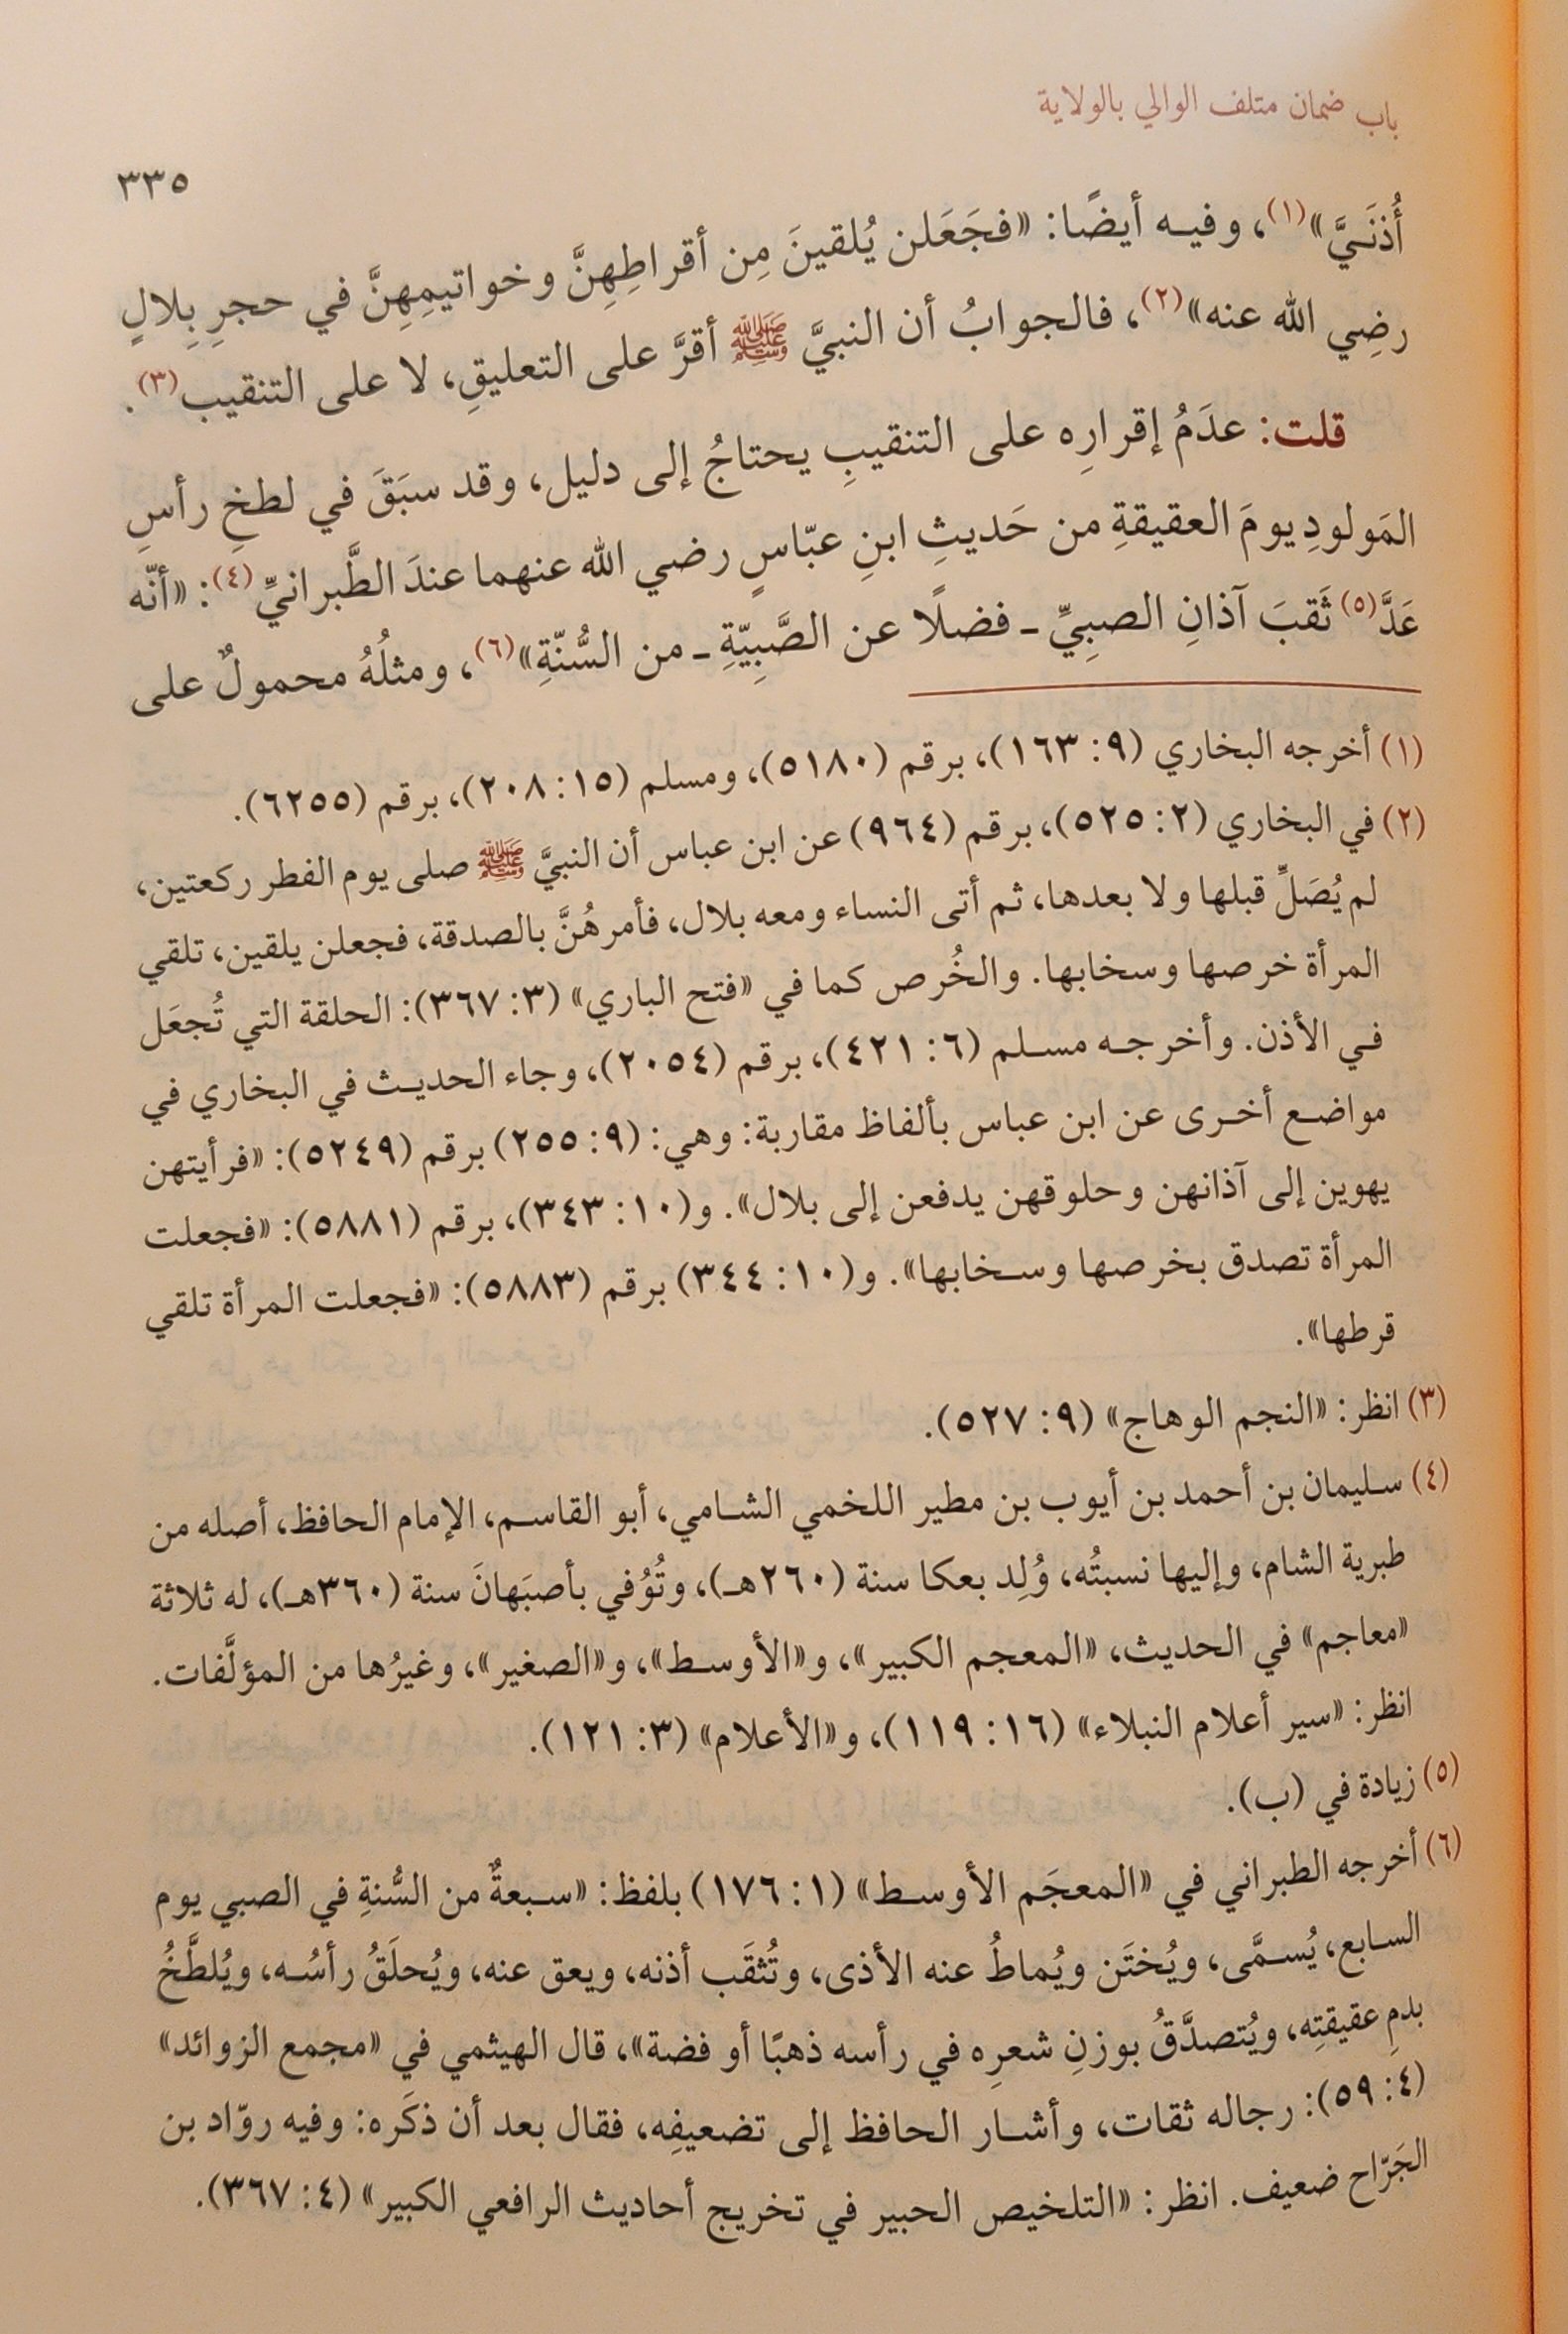 باب ضمان متلف الوالي بالولاية
٣٣٥
أُذنَيَّ»(١)، وفيه أيضًا: «فجَعَلن يُلقينَ مِن أقراطِهِنَّ وخواتيمِهِنَّ في حجرِ بِلالٍ
رضِي الله عنه»(٢)، فالجوابُ أن النبيَّ ﷺ أقرَّ على التعليقِ، لا على التنقيب(٣).
قلت: عدَمُ إقرارِه على التنقيبِ يحتاجُ إلى دليل، وقد سبَقَ في لطخِ رأسِ
المَولودِ يومَ العقيقةِ من حَديثِ ابنِ عبّاسٍ رضي الله عنهما عندَ الطَّبرانيِّ(٤): «أنّه
عَدَّ(٥) ثَقبَ آذانِ الصبِيِّ ـ فضلًا عن الصَّبِيّةِ ـ من السُّنّةِ»(٦)، ومثلُهُ محمولٌ على
(١) أخرجه البخاري (٩: ١٦٣)، برقم (٥١٨٠)، ومسلم (١٥: ٢٠٨)، برقم (٦٢٥٥).
(٢) في البخاري (٢: ٥٢٥)، برقم (٩٦٤) عن ابن عباس أن النبيَّ ﷺ صلى يوم الفطر ركعتين،
لم يُصَلِّ قبلها ولا بعدها، ثم أتى النساء ومعه بلال، فأمرهُنَّ بالصدقة، فجعلن يلقين، تلقي
المرأة خرصها وسخابها. والخُرص كما في «فتح الباري» (٣: ٣٦٧): الحلقة التي تُجعَل
في الأذن. وأخرجه مسلم (٦: ٤٢١)، برقم (٢٠٥٤)، وجاء الحديث في البخاري في
مواضع أخرى عن ابن عباس بألفاظ مقاربة: وهي: (٩: ٢٥٥) برقم (٥٢٤٩): «فرأيتهن
يهوين إلى آذانهن وحلوقهن يدفعن إلى بلال». و(١٠: ٣٤٣)، برقم (٥٨٨١): «فجعلت
المرأة تصدق بخرصها وسخابها». و(١٠: ٣٤٤) برقم (٥٨٨٣): «فجعلت المرأة تلقي
قرطها».
(٣) انظر: «النجم الوهاج» (٩: ٥٢٧).
(٤) سليمان بن أحمد بن أيوب بن مطير اللخمي الشامي، أبو القاسم، الإمام الحافظ، أصله من
طبرية الشام، وإليها نسبتُه، وُلِد بعكا سنة (٢٦٠هـ)، وتُوُفي بأصبَهانَ سنة (٣٦٠هـ)، له ثلاثة
«معاجم» في الحديث، «المعجم الكبير»، و«الأوسط»، و«الصغير»، وغيرُها من المؤلَّفات.
انظر: «سير أعلام النبلاء» (١٦: ١١٩)، و«الأعلام» (٣: ١٢١).
(٥) زيادة في (ب).
(٦) أخرجه الطبراني في «المعجَم الأوسط» (١: ١٧٦) بلفظ: «سبعةٌ من السُّنةِ في الصبي يوم
السابع، يُسمَّى، ويُختَن ويُماطُ عنه الأذى، وتُثقَب أذنه، ويعق عنه، ويُحلَقُ رأسُه، ويُلطَّخُ
بدمِ عقيقتِه، ويُتصدَّقُ بوزنِ شعرِه في رأسه ذهبًا أو فضة»، قال الهيثمي في «مجمع الزوائد»
(٤: ٥٩): رجاله ثقات، وأشار الحافظ إلى تضعيفِه، فقال بعد أن ذكَره: وفيه روّاد بن
الجَرّاح ضعيف. انظر: «التلخيص الحبير في تخريج أحاديث الرافعي الكبير» (٤: ٣٦٧).